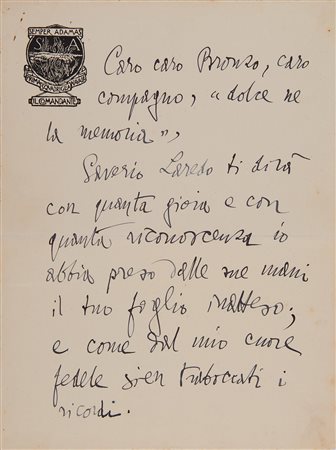 SEMPER ADAMAS
S A
PRIMA SQUADRIGLIA NAVALE
IL COMANDANTE
Caro caro Bronzo, caro
compagno, "dolce ne
la memoria",
Saverio Laredo ti dirà
con quanta gioia e con
quanta riconoscenza io
abbia preso dalle sue mani
il tuo foglio inatteso;
e come dal mio cuore
fedele sien traboccati i
ricordi.